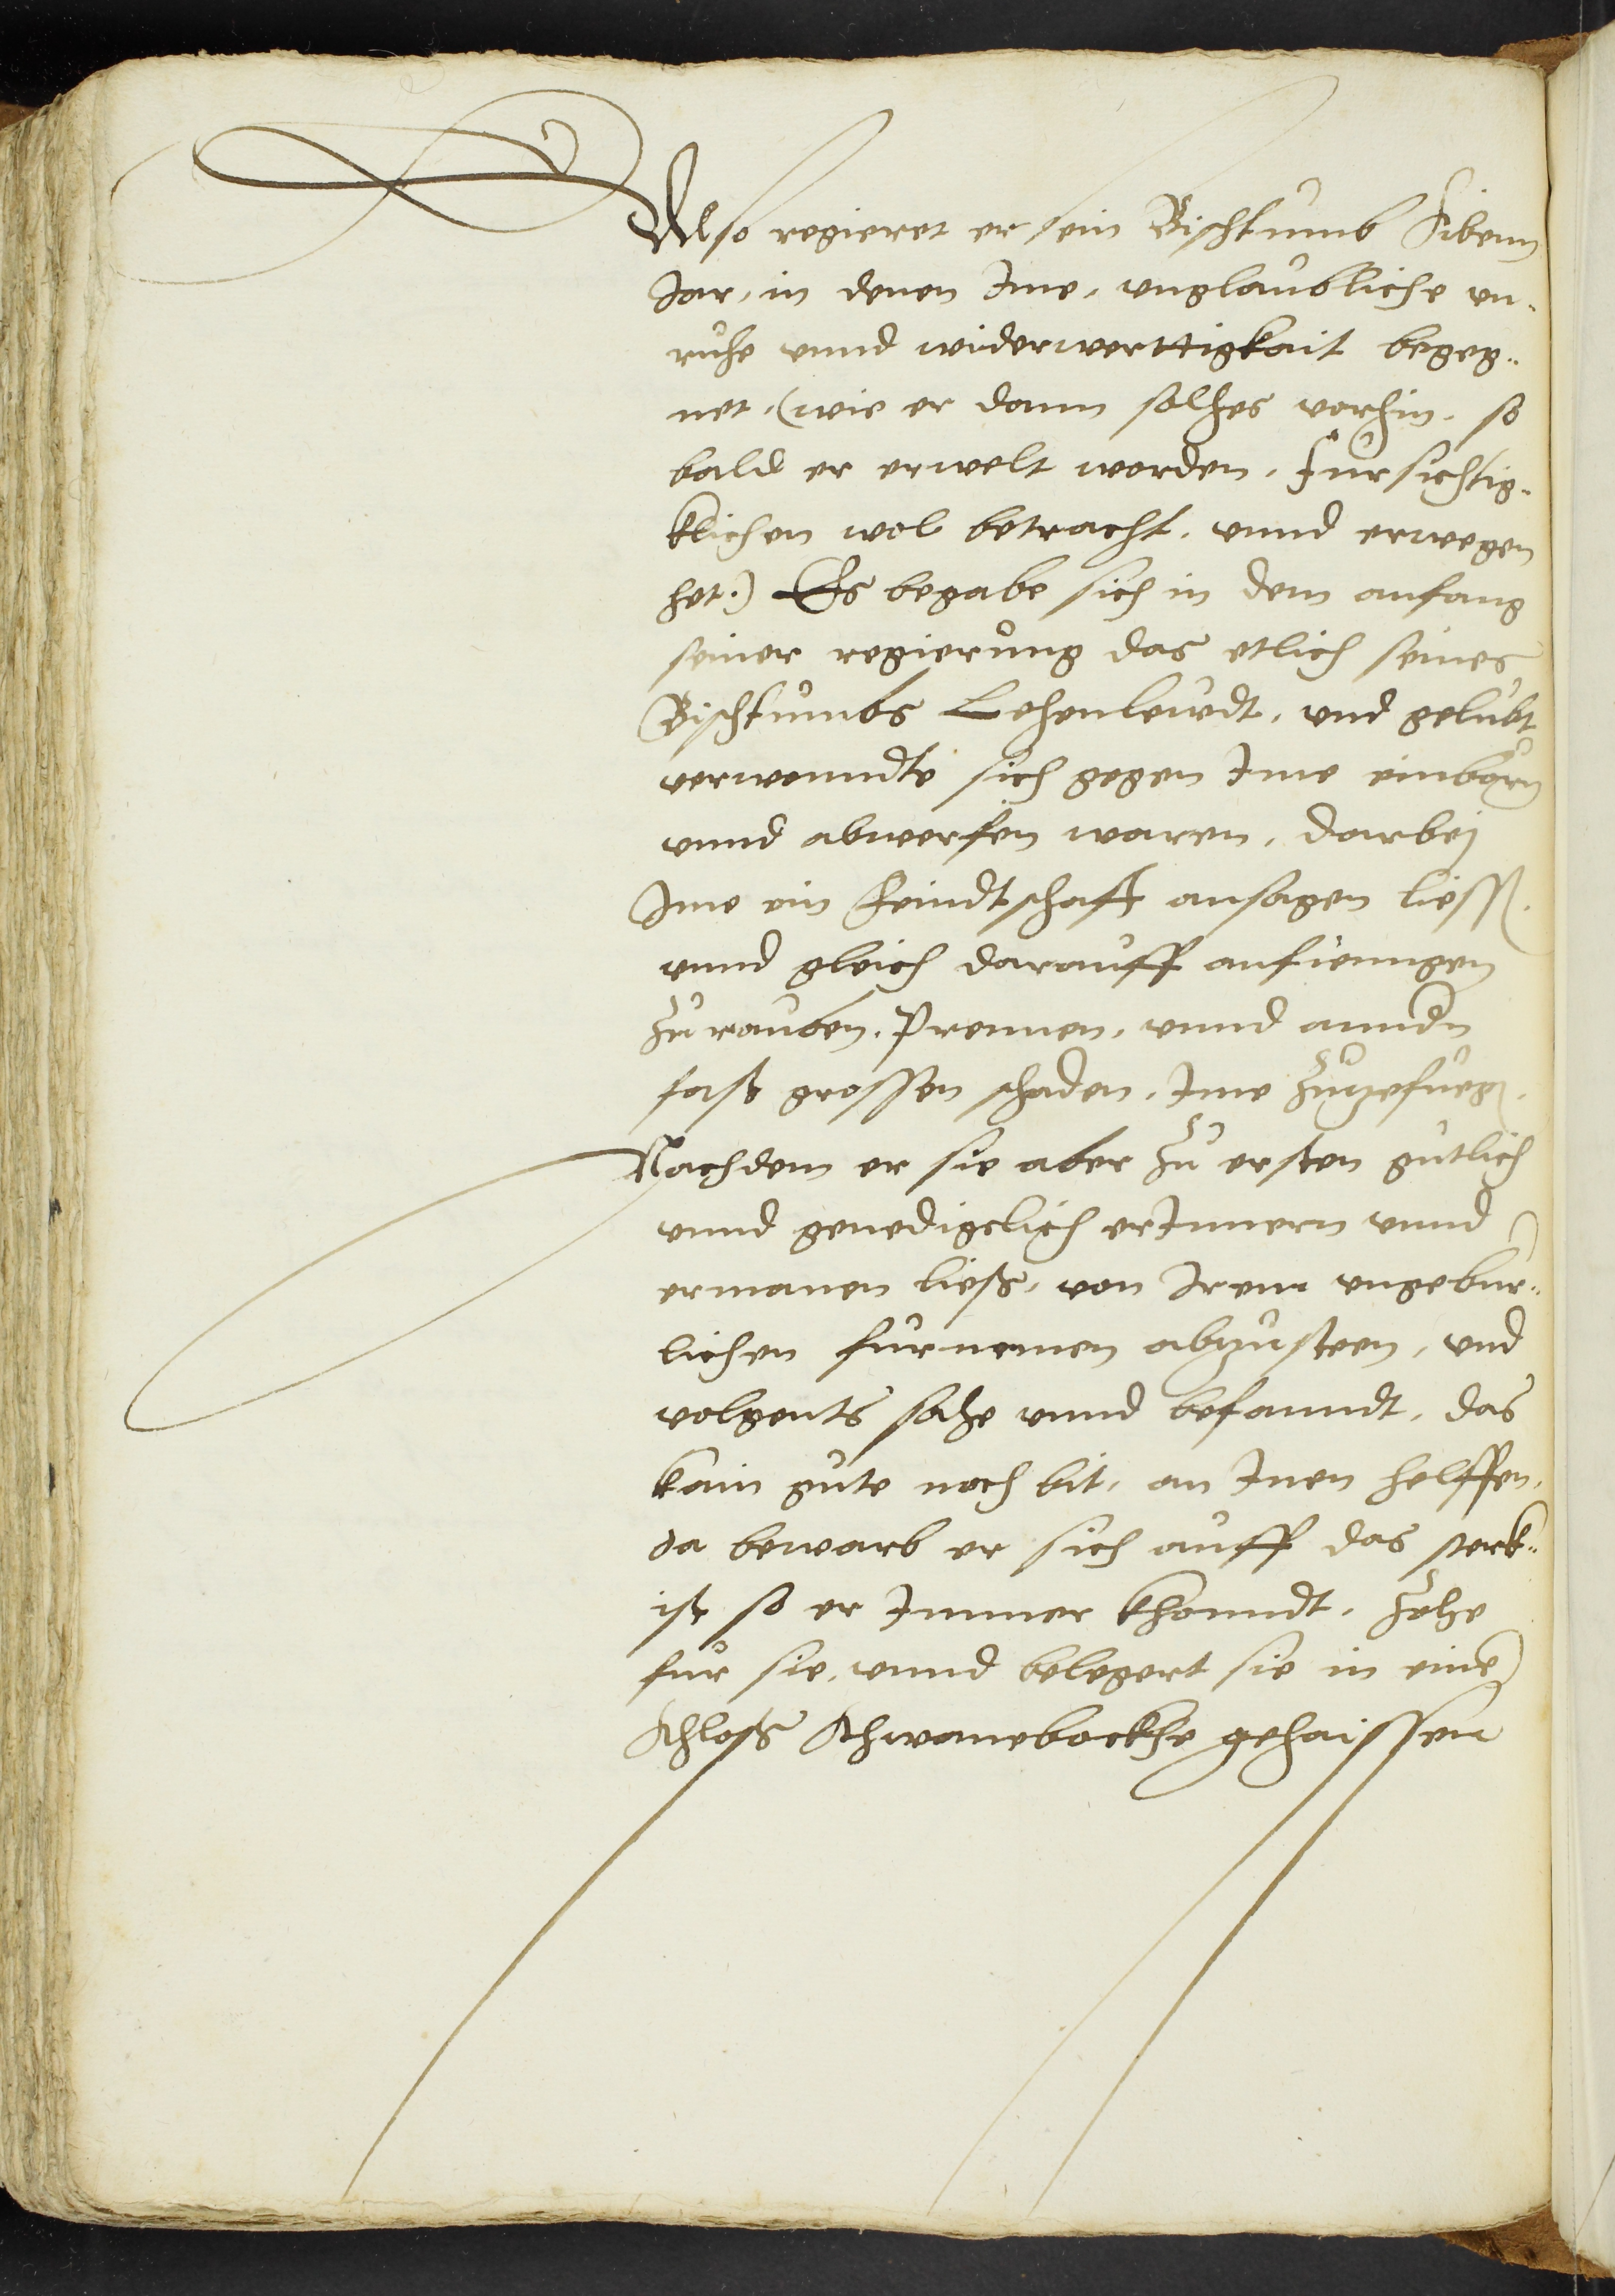 Also regieret er sein Bischtumb Sibenn
Jar, in denen Ime, vnglaubliche vn-
ruhe vnnd widerwerttigkait begeg-
net, (wie er dann solhes vorhin, so
bald er erwelt worden, fursichtig-
klichen wol betracht, vnnd erwegen
het.) Es begabe sich in dem anfang
seiner regierung das etlich seines
Bischtumbs Lehenleudt, vnd gelubt
verwanndte sich gegen Ime
vnnd abwerfen waren, darbej
Ime ein Feindtschafft ansagen liess,
vnnd gleich darauff anfienngen
zu rauben, Prennen, vnnd anndn
fasst grossen schaden, Ime zuzefuegn,
Nachdem er sie aber zu ersten gutlich
vnnd genedigclich erInnern vnnd
ermanen ließ, von Irem vngebur-
lichen furnemen abzusteen, vnd
volgents sahe vnnd befanndt, das
kain gute noch bit, an Inen helffen,
da bewarb er sich auff das sterk-
ist so er Immer khonndt, Zohe
fur sie, vnnd belegert sie in eine
Schloß Schwanebeckhe gehaissen